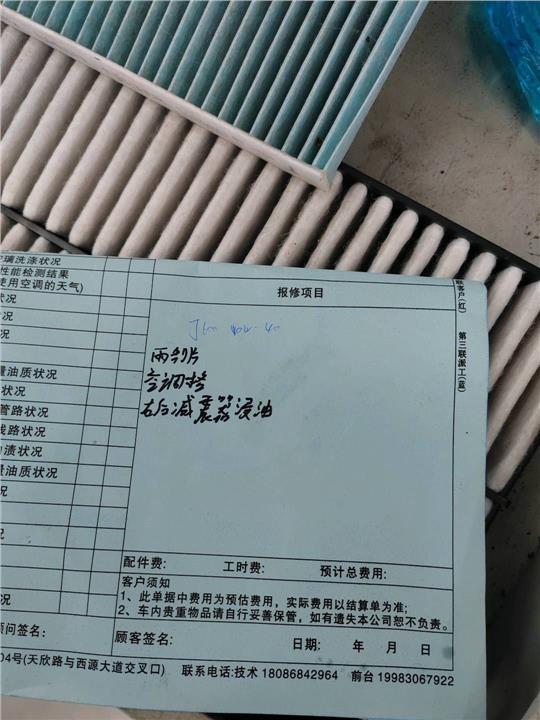 玻璃洗涤状况
性能检测结果
使用空调的天气)
状况
况
状况
量油质状况
状况
管路状况
线路状况
渍状况
量油质状况
况
况
报修项目
雨刮片
空调格
右后减震器浸油
配件费: 工时费: 预计总费用:
客户须知
1、此单据中费用为预估费用，实际费用以结算单为准;
2、车内贵重物品请自行妥善保管，如有遗失本公司恕不负责。
顾问签名: 顾客签名: 日期: 年 月 日
04号(天欣路与西源大道交叉口) 联系电话:技术 18086842964 前台 19983067922
客户(红)
第三联派工(蓝)